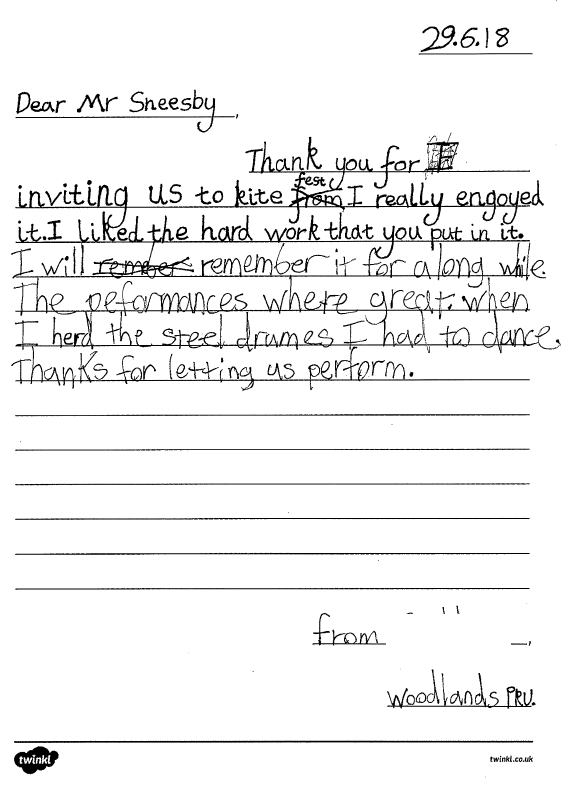 29.6.18
Dear Mr Sneesby,
Thank you for
inviting us to kite fest, I really engoyed
it. I liked the hard work that you put in it.
I will remember it for a long while.
The peformances where great. when
I herd the steel drumes I had to dance.
Thanks for letting us perform.
from
Woodlands PRU.
twinkl twinkl.co.uk